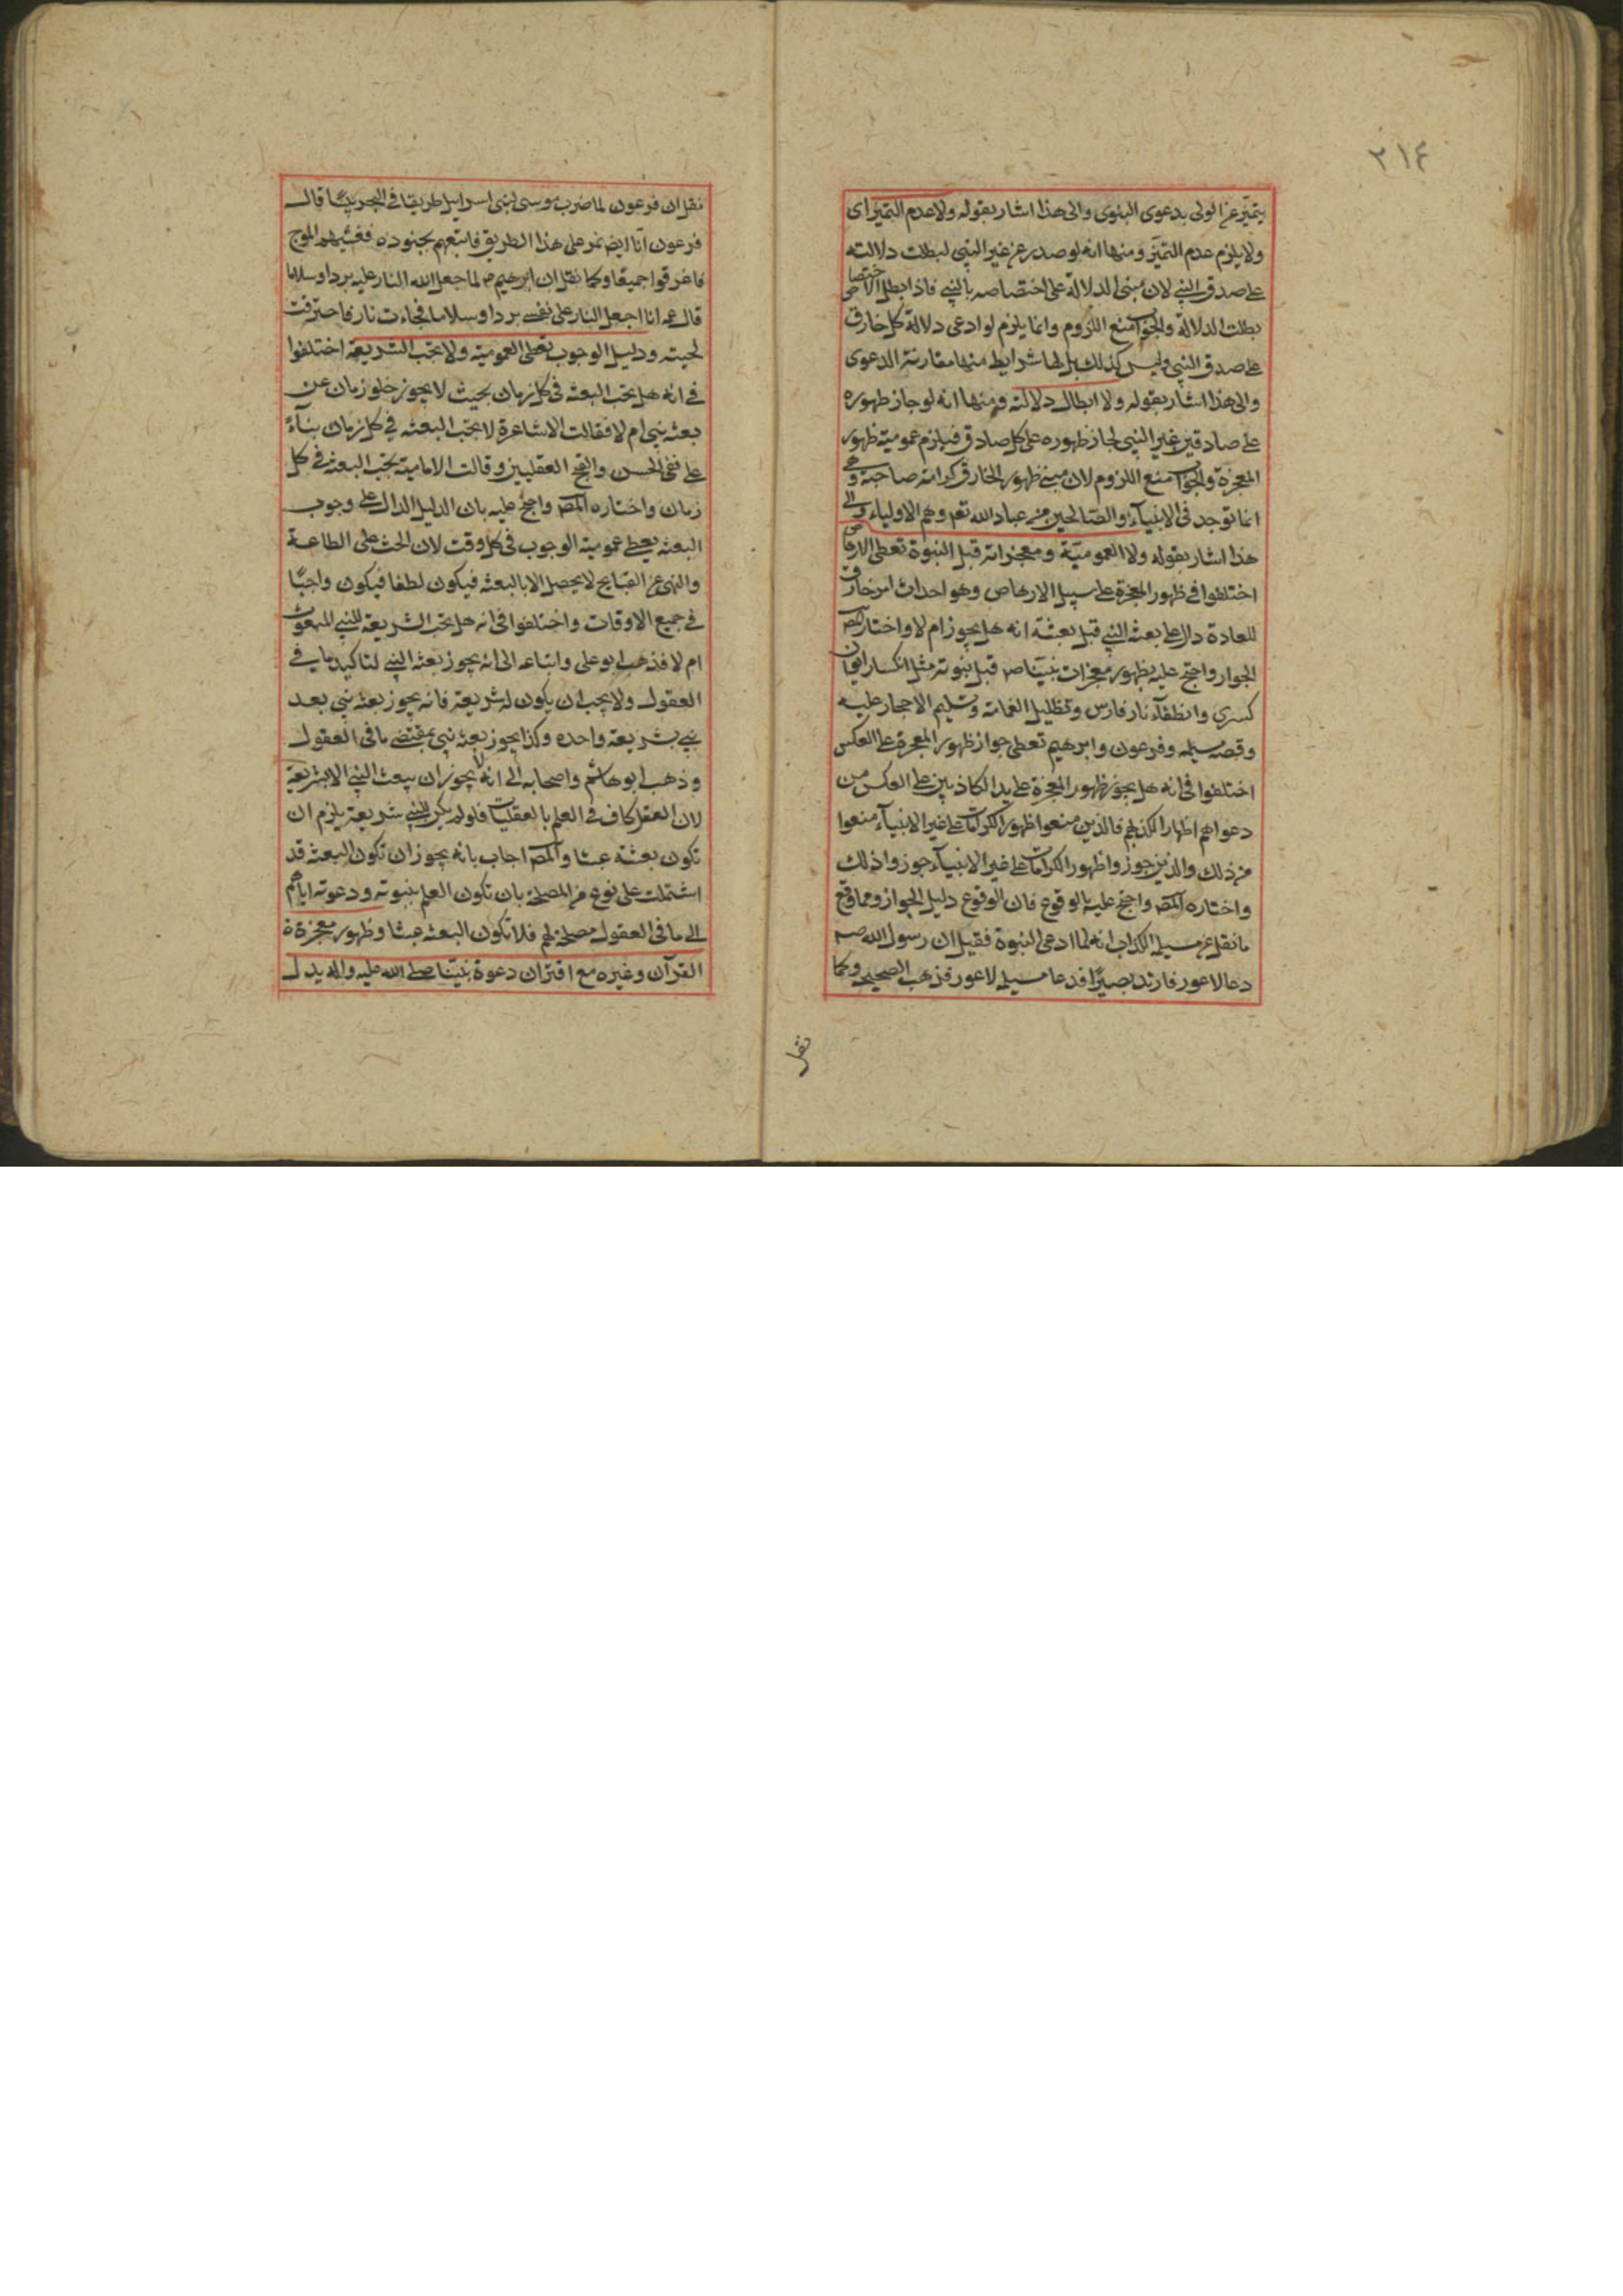 ٢١٤
يتميّز عن الولى بدعوى النبوى والى هذا اشار بقوله ولا عدم التميّز اى
ولا يلزم عدم التميّز ومنها انه لو صدر عن غير النبى لبطلت دلالته
على صدق النبى لان مبنى الدلالة على اختصاصه بالنبى فاذا بطل الاختصاص
بطلت الدلالة والجوٓاب منع اللزوم وانما يلزم لو ادعى دلالة كل خارق
على صدق النبى وليس كذلك بل لها شرايط منها مقارنة الدعوى
والى هذا اشار بقوله ولا ابطال دلالته ومنها انه لو جاز ظهوره
على صادق غير النبى لجاز ظهوره على كل صادق فيلزم عمومية ظهور
المعجزة والجوٓاب منع اللزوم لان مبنى ظهور الخارق كرامة صاحبه وهى
انما توجد فى الانبيآء والصّالحين من عباد الله تعم وهم الاولياء والى
هذا اشار بقوله ولا العموميّة ومعجزاته قبل النبوة تعطى الارهاص
اختلفوا فى ظهور المعجزة على سبيل الارهاص وهو احداث امر خارق
للعادة دال على بعثة النبى قبل بعثته انه هل يجوز ام لا واختار المص
الجواز واحتج عليه بظهور معجزات نبيّنا ص قبل نبوته مثل انكسار ايوان
كسرى وانطفآء نار فارس وتظليل الغمامة وتسليم الاحجار عليه
وقصه مسيلمه وفرعون وابرهيم تعطى جواز ظهور المعجزة على العكس
اختلفوا فى انه هل يجوز ظهور المعجزة على يد الكاذبين على العكس من
دعواهم اظهارا لكذبهم فالذين منعوا ظهور الكرامات على غير الانبيآء منعوا
من ذلك والذين جوزوا ظهور الكرامات على غير الانبيآء جوزوا ذلك
واختاره المص واحتج عليه بالوقوع فان الوقوع دليل الجواز ومما وقع
ما نقل عن مسيلمه الكذاب انه لما ادعى النبوة فقيل ان رسول الله صم
دعا لاعور فارتد بصيرًا فدعا مسيلمه لاعور فذهب الصحيحه وكما
نقل
نقل ان فرعون لما ضرب موسى لبنى اسرايل طريقا فى البحر يبسًا قال
فرعون انا ايض نمر على هذا الطريق فاتبعهم بجنوده فغشيهم الموج
فاغرقوا جميعًا وكما نقل ان ابرهيم م لما جعل الله النار عليه بردا وسلاما
قال عمه انا اجعل النار على نفسى بردا وسلاما فجاءت نار فاحترقت
لحيته ودليل الوجوب تعطى العمومية ولا تجب الشريعة اختلفوا
فى انه هل تجب البعثه فى كل زمان بحيث لا يجوز خلو زمان عن
بعثه نبى ام لا فقالت الاشاعرة لا تجب البعثه فى كل زمان بنآءً
على نفى الحسن والقبح العقليين وقالت الامامية تجب البعثه فى كل
زمان واختاره المص واحتج عليه بان الدليل الدال على وجوب
البعثه يعطى عمومية الوجوب فى كل وقت لان الحث على الطاعة
والنهى عن القبايح لا يحصل الا بالبعثه فيكون لطفا فيكون واجبًا
فى جميع الاوقات واختلفوا فى انه هل تجب الشريعة للنبى المبعوث
ام لا فذهب ابو على واتباعه الى انه يجوز بعثة النبى لتاكيد ما فى
العقول ولا يجب ان يكون له شريعة فانه يجوز بعثه نبى بعد
نبى بشريعة واحده وكذا يجوز بعثه نبى بمقتضى ما فى العقول
وذهب ابو هاشم واصحابه الى انه لا يجوز ان يبعث النبى الا بشريعة
لان العقل كاف فى العلم بالعقليّات فلو لم يكن للنبى شريعة يلزم ان
تكون بعثته عبثا والمص اجاب بانه يجوز ان تكون البعثه قد
اشتملت على نوع من المصلحة بان تكون العلم بنبوته ودعوته اياهم
الى ما فى العقول مصلحة لهم فلا تكون البعثه عبثا وظهور معجزة
القرآن وغيره مع اقتران دعوة نبيّنا صلى الله عليه واله يدل